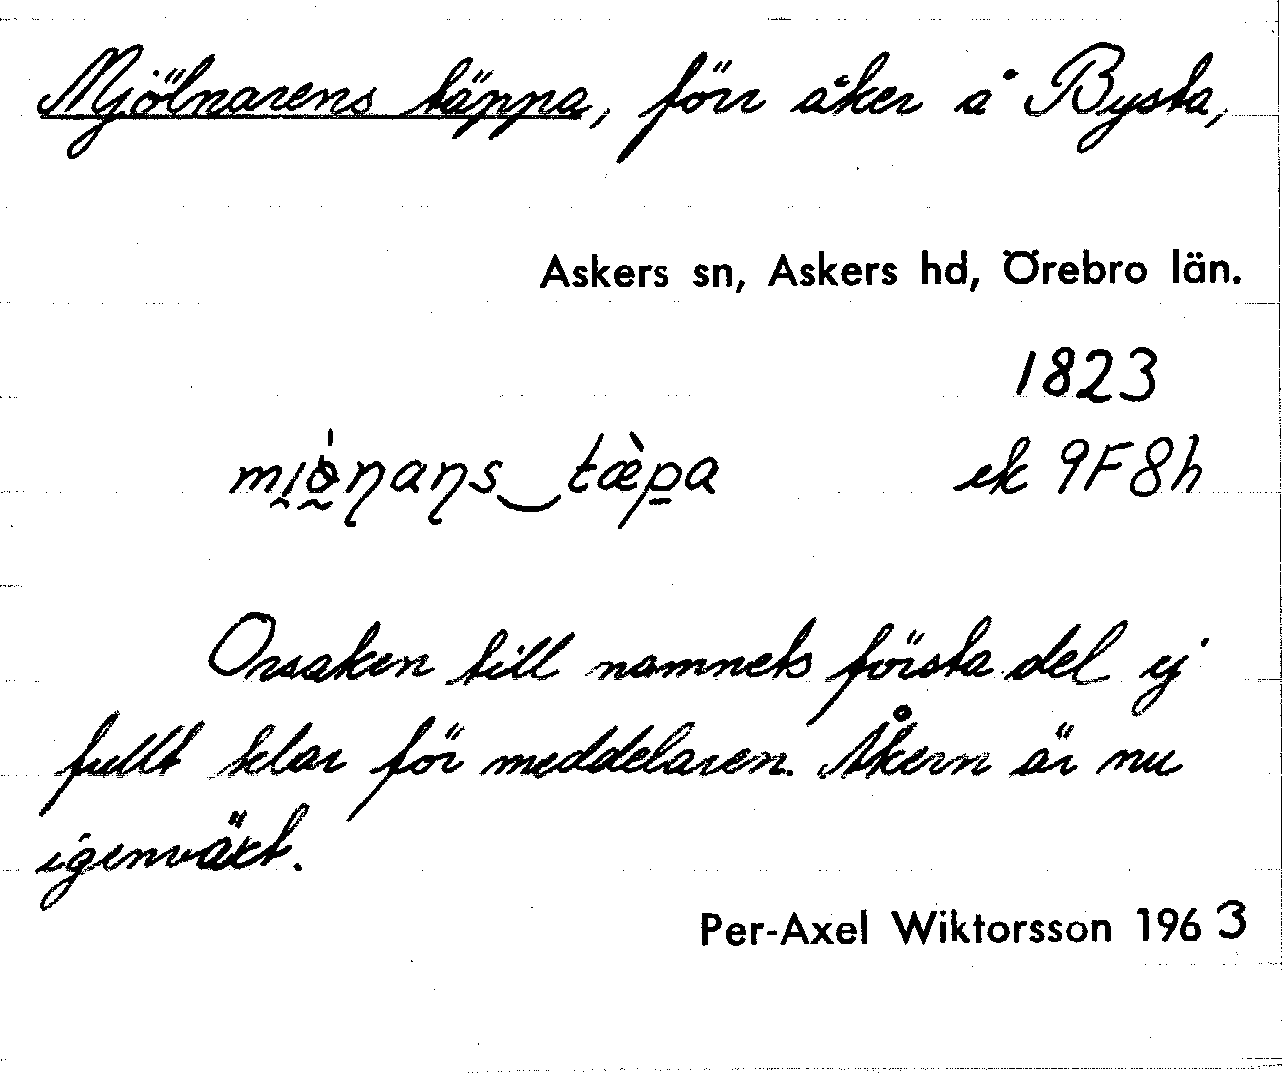 Mjölnarens täppa, förr åker å Bysta,
Askers sn, Askers hd, Örebro län.
1823
ek 9F8h
Orsaken till namnets första del ej
fullt klar för meddelaren. Åkern är nu
igenväxt.
Per-Axel Wiktorsson 1963